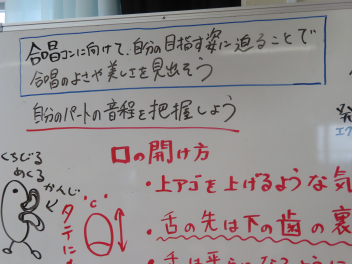 合唱コンに向けて、自分の目指す姿に迫ることで
合唱のよさや美しさを見出そう
自分のパートの音程を把握しよう
口の開け方
くちびる
めくる
かんじ
タテに
・上アゴを上げるような気
・舌の先は下の歯の裏
・舌は平らになるように
発